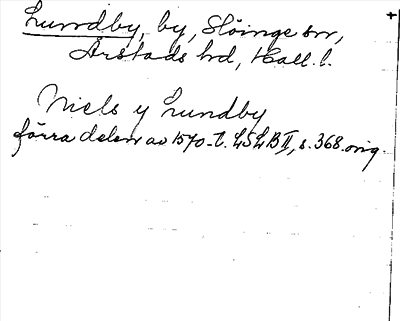 Lundby, by, Slöinge sn,
Årstads hd, Hall. l.
Niels y Lundby
förra delen av 1570-t. LSLB II, s. 368. orig.